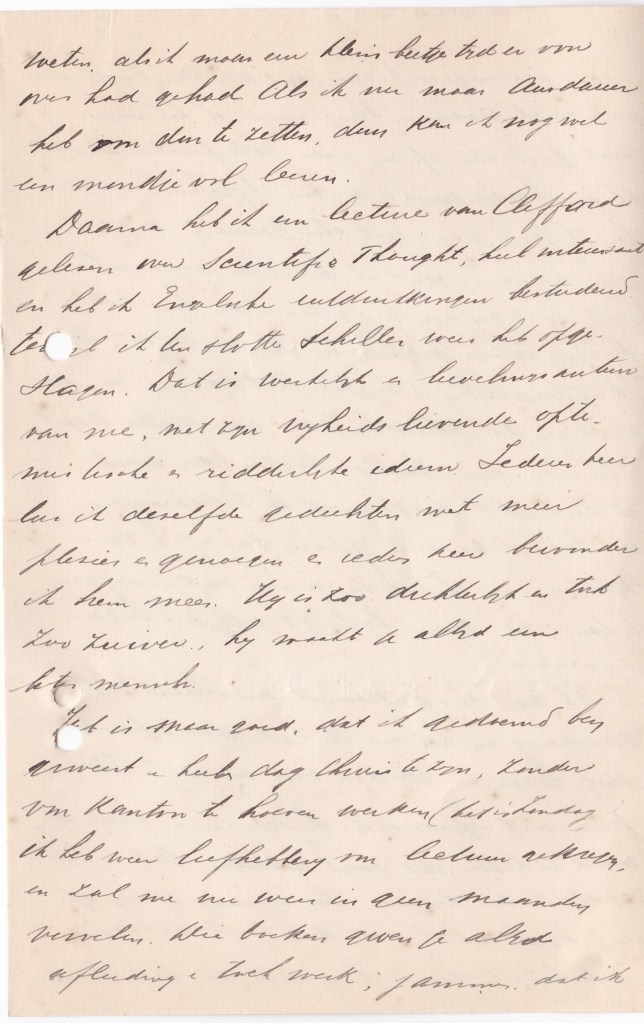 weten, als ik maar een klein beetje tijd er voor
over had gehad. Als ik nu maar Ausdauer
heb om door te zetten, dan kan ik nog wel
een mondje vol leeren.
Daarna heb ik een lecture van Clifford
gelezen over Scientific Thought, heel interessant
en heb ik Engelsche uitdrukkingen bestudeerd
terwijl ik ten slotte Schiller weer heb opge-
slagen. Dat is werkelijk een lievelingsauteur
van me, met zijn vrijheids lievende opti-
mistische en ridderlijke ideeen. Iedere keer
lees ik deselfde gedichten met meer
plezier en genoegen en iedere keer bewonder
ik hem meer. Hij is zoo dichterlijk en toch
zoo zuiver, hij maakt je altijd een
beter mensch.
Het is maar goed, dat ik gedwongen ben
geweest een heele dag thuis te zijn, zonder
voor Kantoor te hoeven werken (het is Zondag)
ik heb weer liefhebberij voor lectuur gekregen,
en zal me nu weer in geen maanden
vervelen. Die boeken geven je altijd
afleiding en toch werk; jammer dat ik